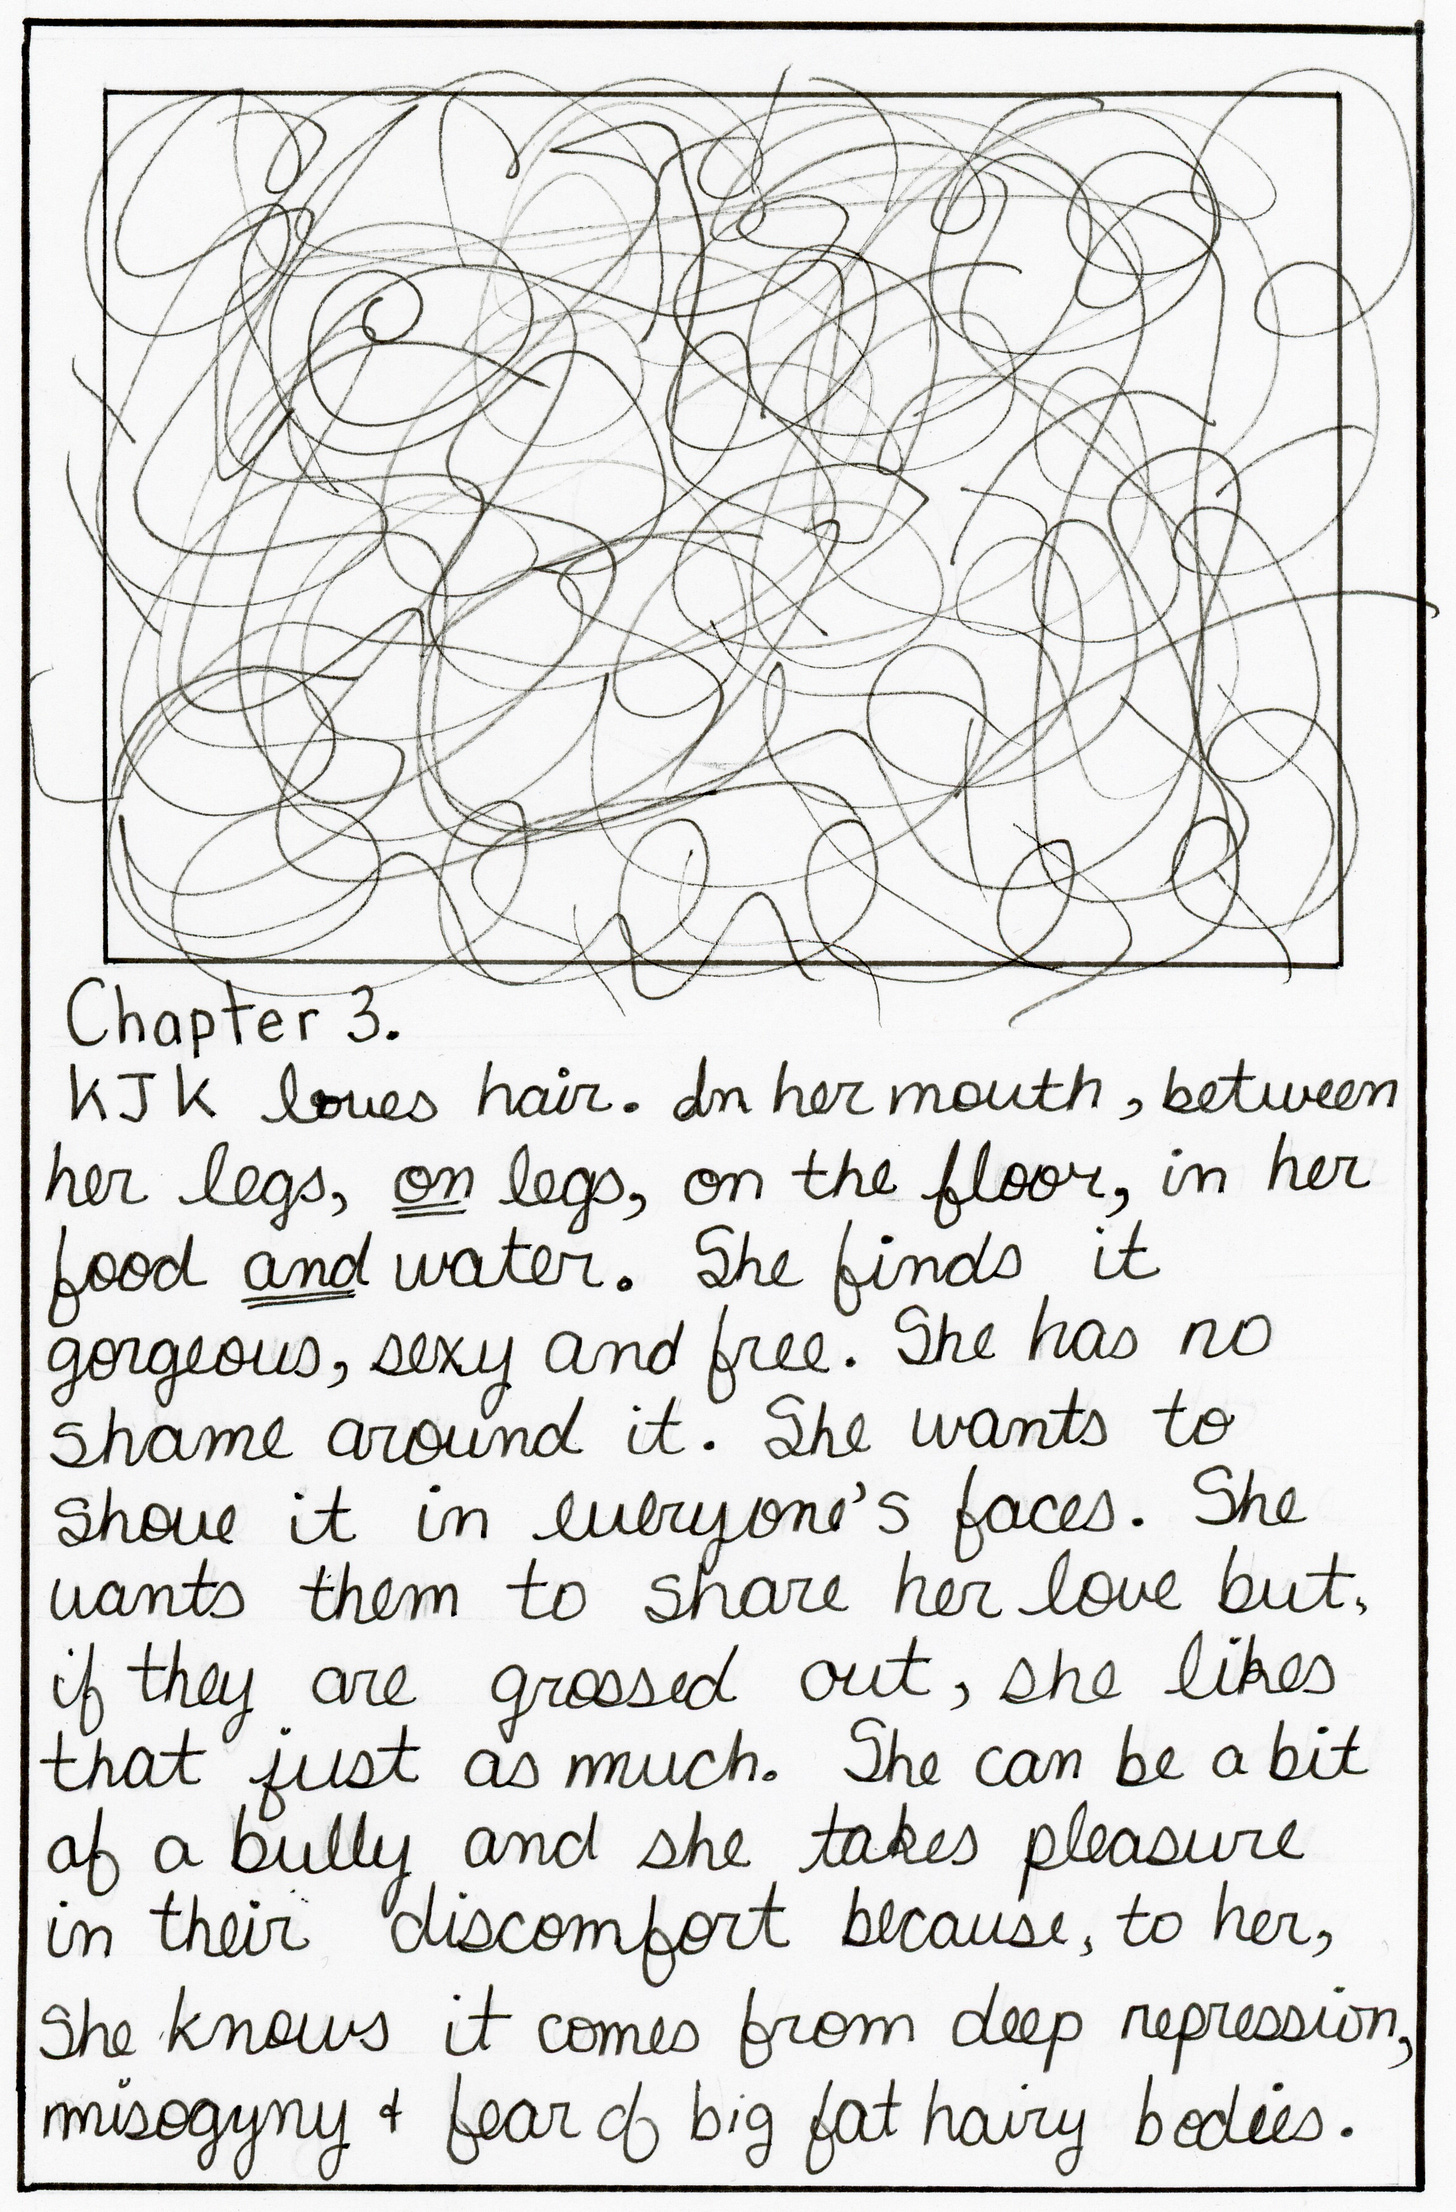 Chapter 3.
KJK loves hair. In her mouth, between
her legs, on legs, on the floor, in her
food and water. She finds it
gorgeous, sexy and free. She has no
shame around it. She wants to
shove it in everyone's faces. She
wants them to share her love but,
if they are grossed out, she likes
that just as much. She can be a bit
of a bully and she takes pleasure
in their discomfort because, to her,
She knows it comes from deep repression,
misogyny & fear of big fat hairy bodies.